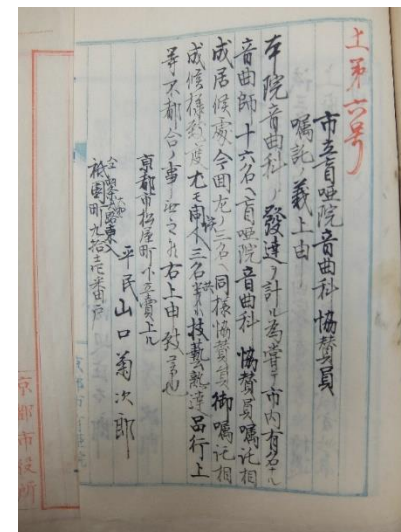 土第六号
市立盲唖院音曲科協賛員
嘱託ノ義上由
本院音曲科ノ發達ヲ計ル為嘗テ市内有名ナル
音曲師十六名ヘ盲唖院音曲科協賛員嘱託相
成居候處今回左ノ三名ヘ同様協賛員御嘱託相
成候様致度尤モ同人三名共技藝熟達品行上
等不都合ノ事無之候右上由致候也
京都市松屋町下立賣上ル
祇園町九拾壱番戸
平民 山口菊次郎
京都市役所